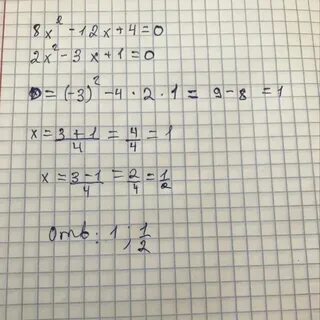 8x² - 12x + 4 = 0
2x² - 3x + 1 = 0
D = (-3)² - 4 · 2 · 1 = 9 - 8 = 1
x = (3 + 1)/4 = 4/4 = 1
x = (3 - 1)/4 = 2/4 = 1/2
Отв: 1 ; 1/2